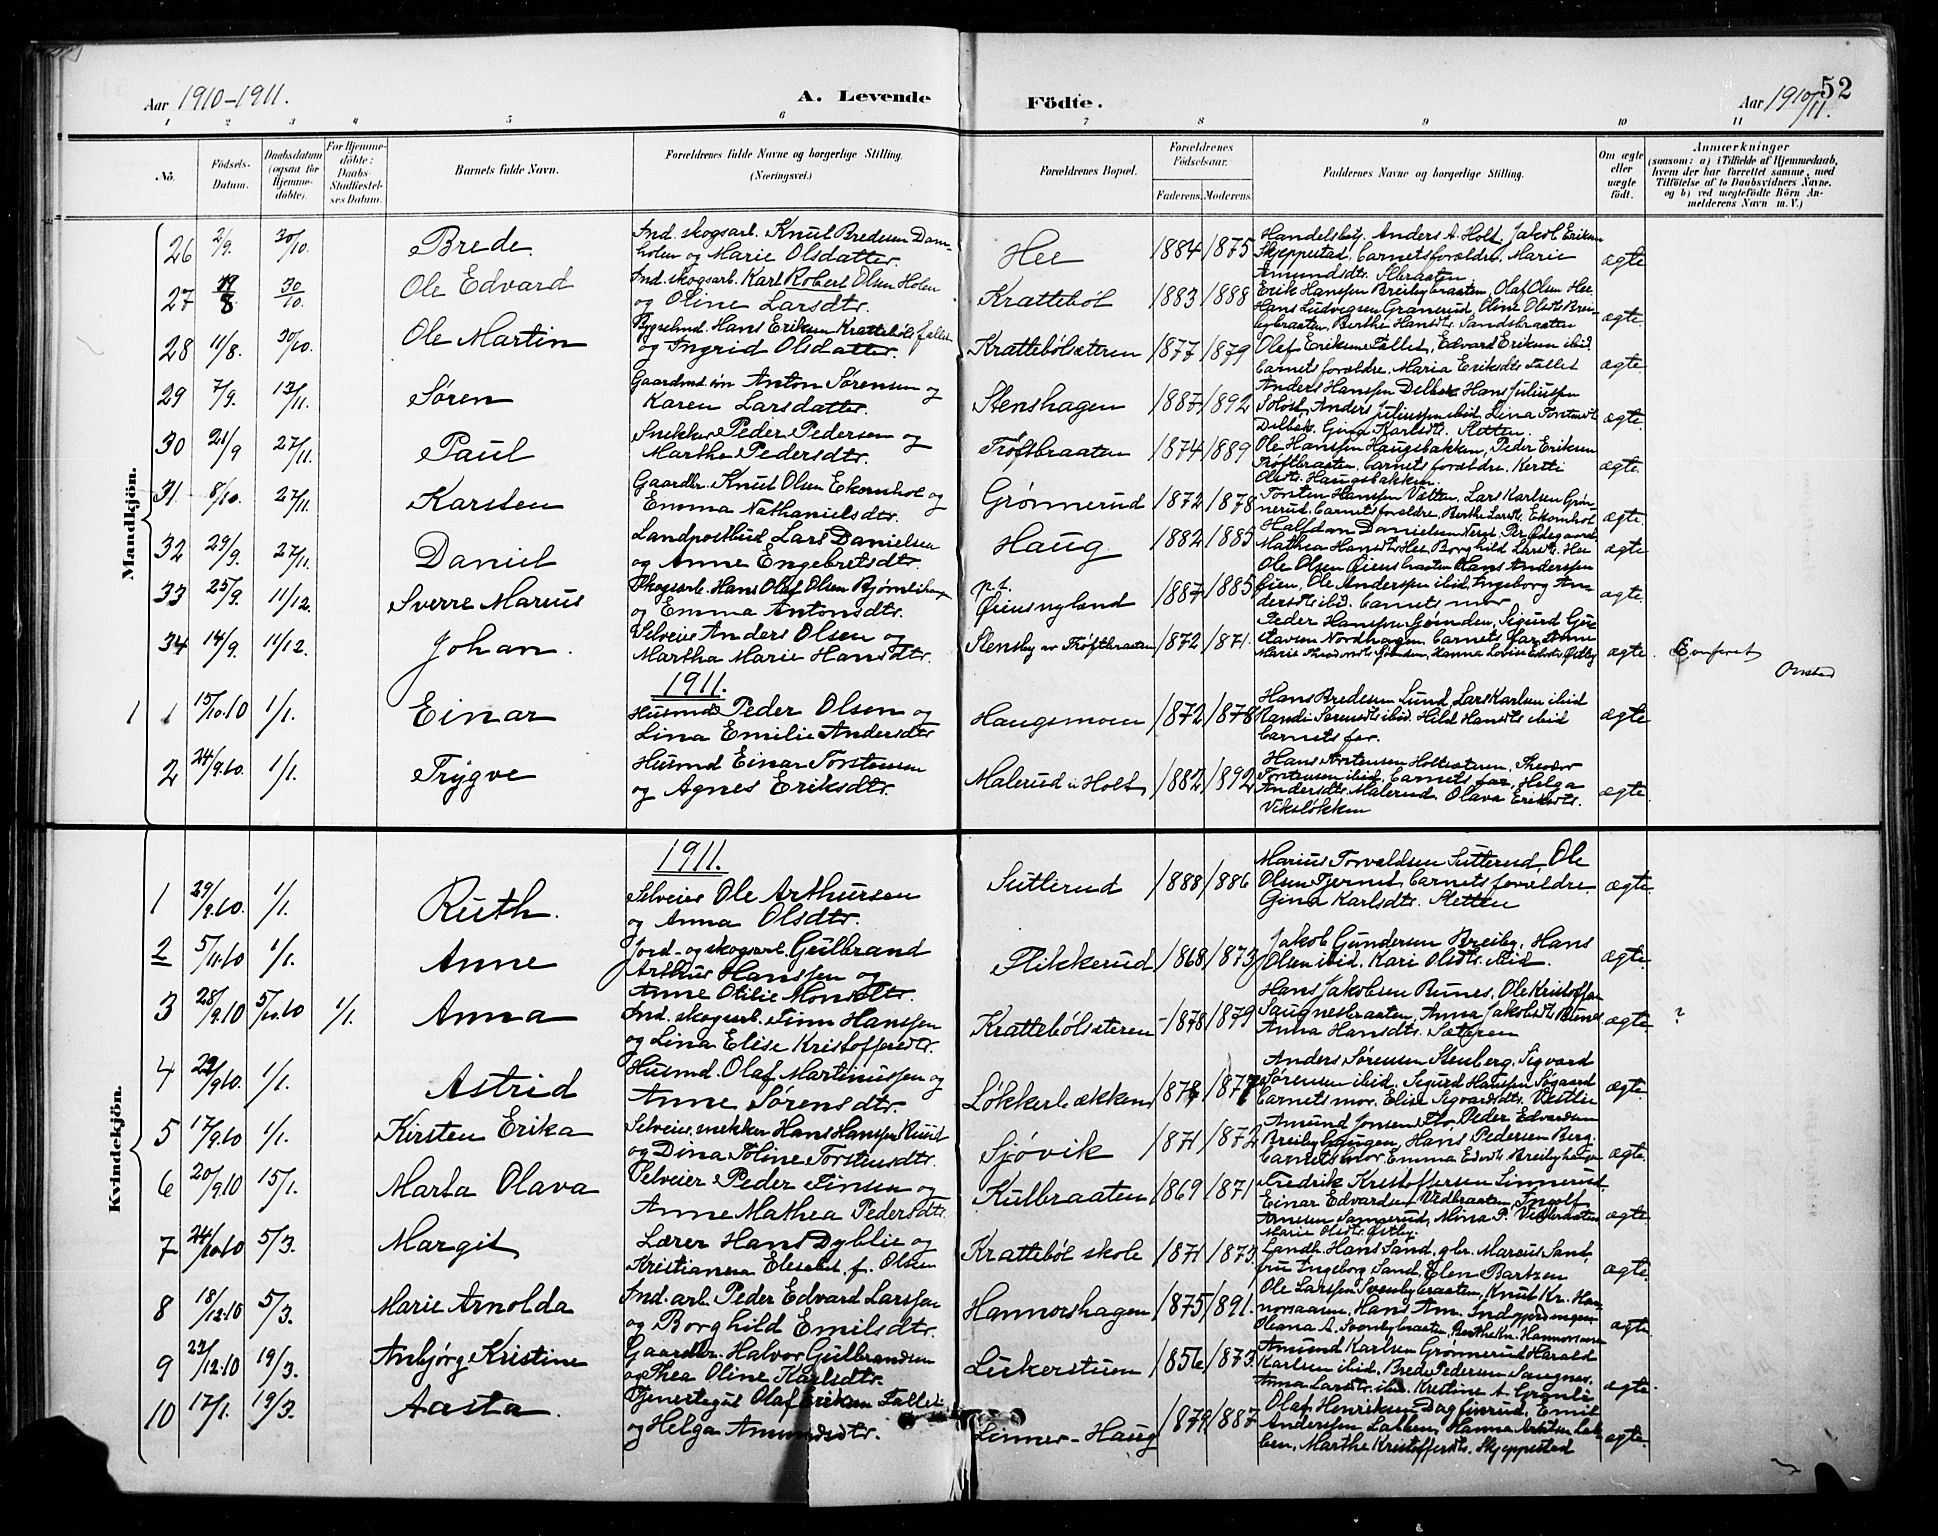 Aar 1910-1911.
A. Levende Födte.
Aar 1910/11.
52
1 2 3 4 5 6 7 8 9 10 11
No.
Födsels-Datum.
Daabsdatum (ogsaa for Hjemme-döbte).
For Hjemme-döbte: Daabs-Stadfæstel-ses Datum.
Barnets fulde Navn.
Forældrenes fulde Navne og borgerlige Stilling. (Næringsvei.)
Forældrenes Bopæl.
Forældrenes Födselsaar.
Faderens. Moderens.
Faddernes Navne og borgerlige Stilling.
Om ægte eller uægte födt.
Anmærkninger
(saasom: a) i Tilfælde af Hjemmedaab,
hvem der har forrettet samme, med
Tilföielse af to Daabsvidners Navne.
og b) ved uægtefödte Börn An-
melderens Navn m. V.)
Mandkjön.
26 2/9. 30/10. Brede Ind. skogsarb. Knut Bredesen Dam-
holen og Marie Olsdatter. Hee 1884 1875 Handelsbetj. Anders A. Holt, Jakob Eriksen
Skjeppestad, barnets forældre, Marie
Amundsdtr. ægte
27 8 30/10. Ole Edvard Ind. skogsarb. Karl Robert Olsen Holen
og Oline Larsdtr. Krattebøl 1883 1888 Erik Hanssen Breibybraaten, Olaf Olsen Hee
Hans Ludvigsen Granerud, Oline Olsdtr Brei-
bybraaten, Berthe Hansdtr. Sandsbraaten ægte.
28 11/8. 30/10. Ole Martin Bygselmd. Hans Eriksen Krattebølsfallet
og Ingrid Olsdatter. Krattebølsæteren 1877 1879 Olaf Eriksen Fallet, Edvard Eriksen ibid.
barnets forældre. Maria Eriksdtr Fallet ægte.
29 7/9. 13/11. Søren Gaardmd. søn Anton Sørensen og
Karen Larsdatter. Stenshagen 1887 1892 Anders Hanssen Delbæk Hans Juliussen
Anders Juliussen ibid, Lina Torstensdtr
Delbæk, Gina Karlsdtr. Sletten. ægte.
30 21/9 27/11. Paul Snekker Peder Pedersen og
Marthe Pedersdtr. Trøftbraaten 1874 1889 Ole Hanssen Haugsbakken, Peder Eriksen
Trøftbraaten, barnets forældre. Kersti
Olsdtr. Haugsbakken. ægte.
31. 8/10. 27/11. Karsten Gaardbr. Knut Olsen Ekornhol og
Emma Nathanielsdtr. Grønnerud 1872 1878 Torsten Hanssen Vætten, Lars Karlsen Grøn-
nerud, barnets forældre, Berthe Larsdtr. Ekornhol ægte.
32 29/9. 27/11. Daniel Landpostbud Lars Danielsen
og Anne Engebretsdtr. Haug 1882 1885 Halfdan Danielsen Per Ødegaard
Mathea Hansdtr Hee, Borghild Larsdtr. Hee ægte
33 25/9. 11/12. Sverre Marius Skogsarb. Hans Olaf Olsen
og Emma Antonsdtr. p.t. Øiensnyland 1887 1885 Ole Olsen Øiensbraaten Hans Anderssen
Øien, Ole Anderssen ibid. Ingeborg An-
dersdtr ibid. barnets mor ægte.
34 14/9. 11/12. Johan. Selveier Anders Olsen og
Martha Marie Hansdtr. Stensby av Trøftbraaten 1872 1871. Peder Hanssen Sigurd Gu-
stavsen Nordhagen, barnets far, Anne
Marie Hanna Lovise Østby ægte. Konferert
Onstad
1911.
1 1 15/10.10 1/1. Einar Husmd. Peder Olsen og
Lina Emilie Andersdtr Haugsmoen 1872 1878 Hans Bredesen Lund, Lars Karlsen ibid
Randi Sørensdtr ibid. Hild Hansdtr ibid
barnets far. ægte
2 24/9.10. 1/1. Trygve Husmd Einar Torstensen
og Agnes Eriksdtr. Malerud u. Holt 1882 1892 Hans Torstensen Holtsæteren, Theodor
Torstensen ibid, barnets far, Helga
Andersdtr. Malerud. Olava Eriksdtr.
Viksløkken ægte.
Kvindekjön.
1911.
1 29/9.10. 1/1. Ruth. Selveier Ole Arthursen
og Anna Olsdtr. Sutterud 1888 1886 Marius Torvaldsen Sutterud, Ole
Olsen Tjernet, barnets forældre.
Gina Karlsdtr. Sletten ægte
2 5/11.10 1/1. Anne Jord- og skogsarb. Gulbrand
Arthur Hanssen og
Anne Otilie Monsdtr. Flikkerud 1868 1873 Jakob Gundersen Breiby, Hans
Olsen ibid. Kari Olsdtr. ibid. ægte
3 28/9.10 5/10.10 1/1. Anna Ind. skogsarb. Finn Hanssen
og Lina Elise Kristoffersdtr. Krattebølsæteren 1878 1879 Hans Jakobsen Bunes, Ole Kristoffersen
Saugnesbraaten, Anna Jakobsdtr Bunes
Anna Hansdtr. Sæteren ægte ?
4 1/1. Astrid Husmd. Olaf Martinussen og
Anne Sørensdtr. Løkkerbækken 1877 Anders Sørensen Stenberg, Sigvard
Sørensen ibid. Sigurd Hanssen Søgaard
barnets mor. Elise Sigvardsdtr. Væstlie ægte
5 17/9.10 1/1. Kirsten Erika Selveier, snekker Hans Hanssen Ruud
og Dina Oline Torstensdtr. Sjøvik 1871 1872 Amund Jonsen Flo, Peder Edvardsen
Breibyhaugen, Hans Pedersen Berg,
barnets mor. Emma Edvdtr Breibyhaugen ægte.
6 20/9.10 15/1. Marta Olava Selveier Peder Finsen og
Anne Mathea Pedersdtr. Kulbraaten 1869 1871 Fredrik Kristoffersen Linnerud,
Einar Edvardsen Vidbraaten, Ingolf
Arnesen Sannerud, Mina P. Vidbraaten
Marie Olsdtr. Østby. ægte
7 24/10.10 5/3. Margit Lærer Hans Dyblie og
Kristianna Elisabet f. Olsen Krattebøl skole 1871 1873. Landh. Hans Sand, gbr. Marcus Sand,
fru Ingeborg Sand, Elen Bartzen ægte.
8 18/12.10 5/3. Marie Arnolda Ind. arb. Peder Edvard Larssen
og Borghild Emilsdtr. Hannorshagen 1875 1891. Ole Larssen Svenbybraaten, Knut Kr. Han-
norsaaen, Hans Am.
Oleana A. Svenbybraaten, Berthe Kr. Hannorsaaen ægte
9 12.10 19/3. Anbjørg Kristine Gaardbr. Halvor Gulbrandsen
og Thea Oline Karlsdtr. Lukerstuen 1856 1873. Amund Karlsen Grønnerud Harald
Karlsen ibid, Brede Pedersen Saugnes,
Anna Larsdtr ibid. Kristine A. Granli ægte.
10 17/1. 19/3. Aasta. Tjenestegut Olaf Eriksen Fallet
og Helga Amundsdtr. Linner-Haug 1879 1887 Olaf Henriksen Dagfinrud, Emil
Anderssen Løkken, Hanna Løk-
ken, Marthe Kristoffersdtr. Skjeppestad ægte.